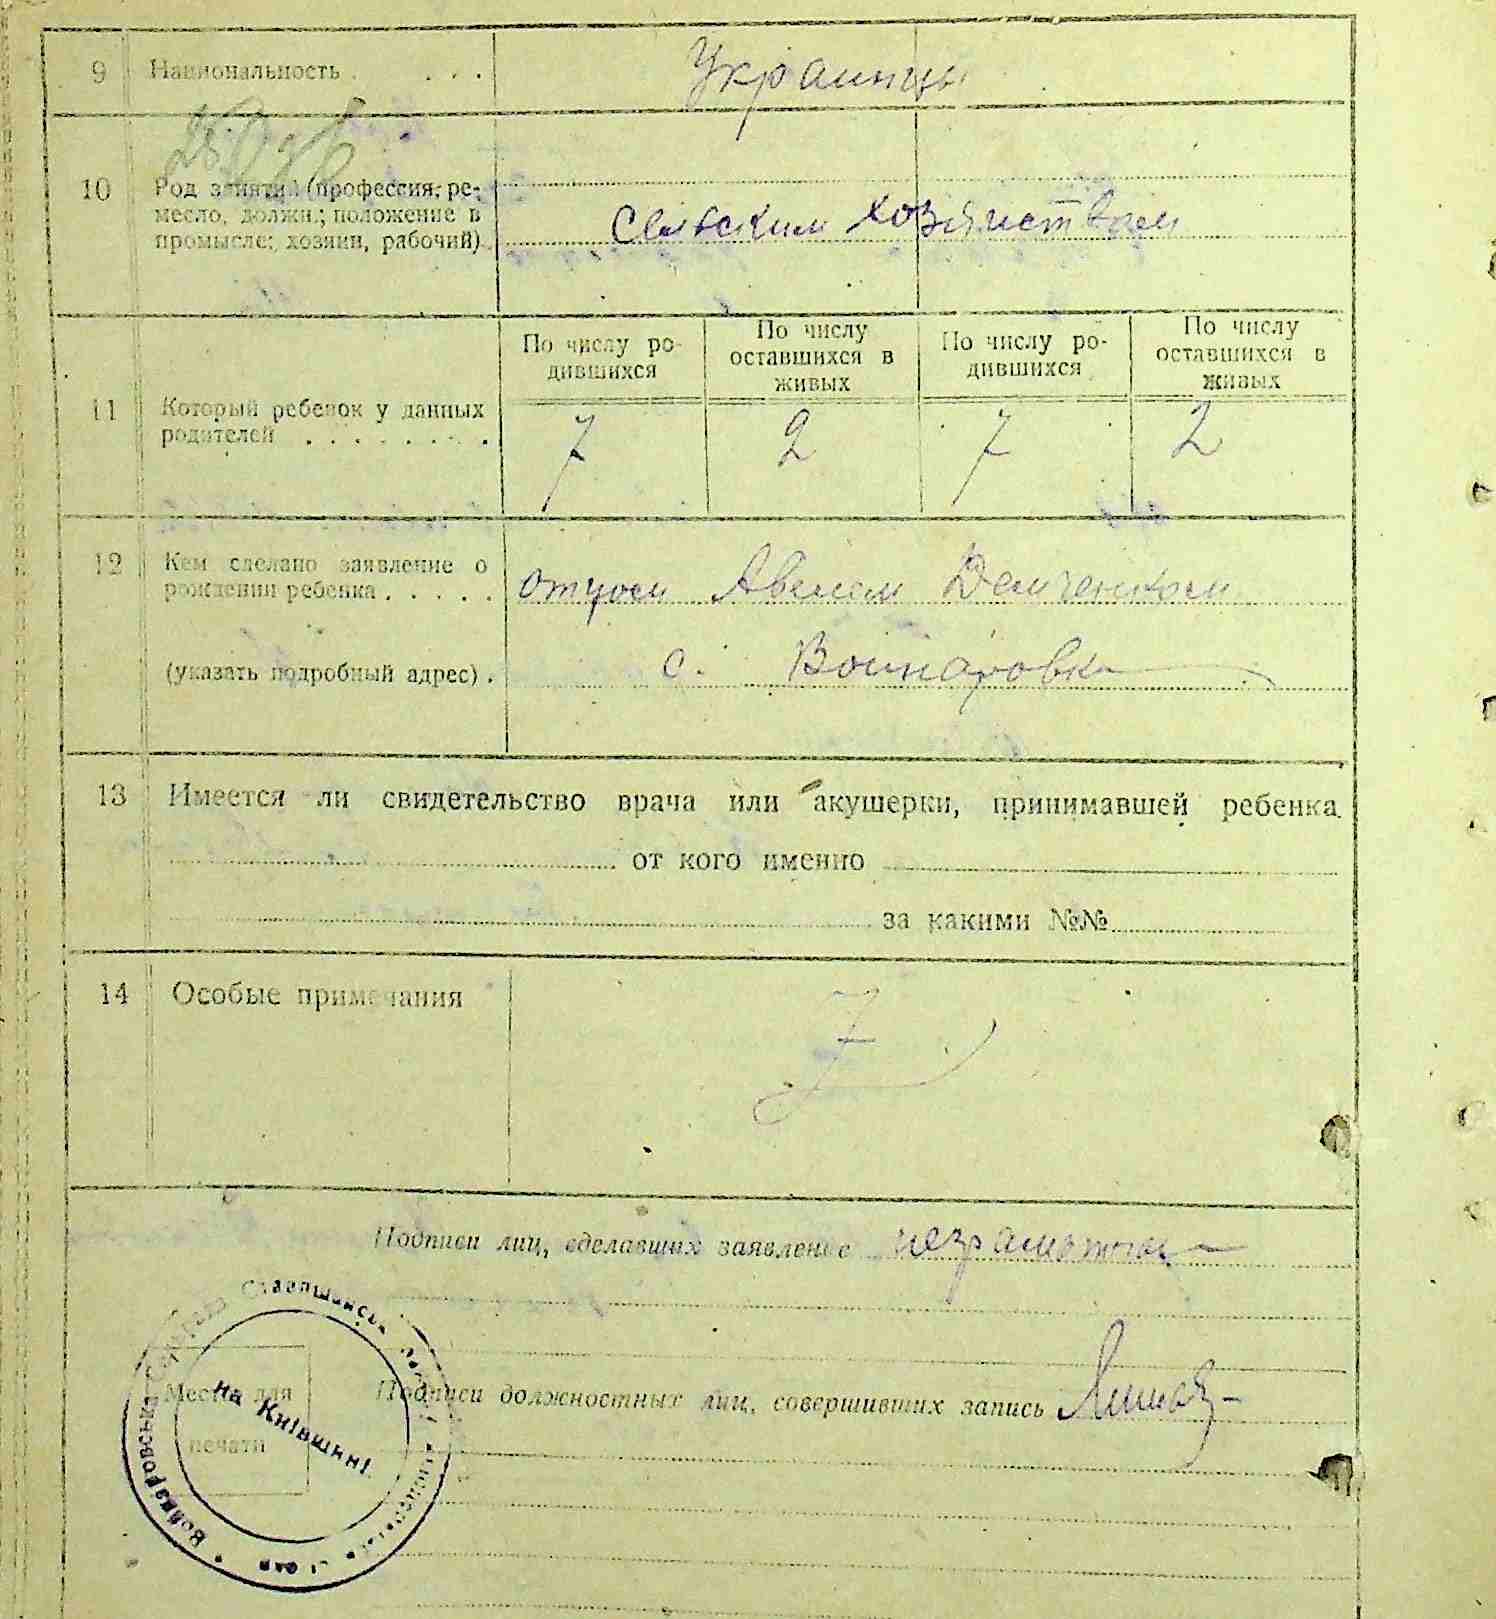 9 Национальность . . . . Украинцы
10 Род занятий (профессия, ре-
месло, должн.; положение в
промысле: хозяин, рабочий)
Сельским хозяиством
По числу ро-
дившихся
По числу
оставшихся в
живых
По числу ро-
дившихся
По числу
оставшихся в
живых
11 Который ребенок у данных
родителей . . . . . . . .
7 2 7 2
12 Кем сделано заявление о
рождении ребенка . . . . .
отцом Авелем Демченком
(указать подробный адрес) . с. Войнаровка
13 Имеется ли свидетельство врача или акушерки, принимавшей ребенка
от кого именно
за какими №№
14 Особые примечания
Подписи лиц, сделавших заявление неграмотны
Место для
печати
на Київщині
Войнаровська Сільрада Ставищанськ
Подписи должностных лиц, совершивших запись